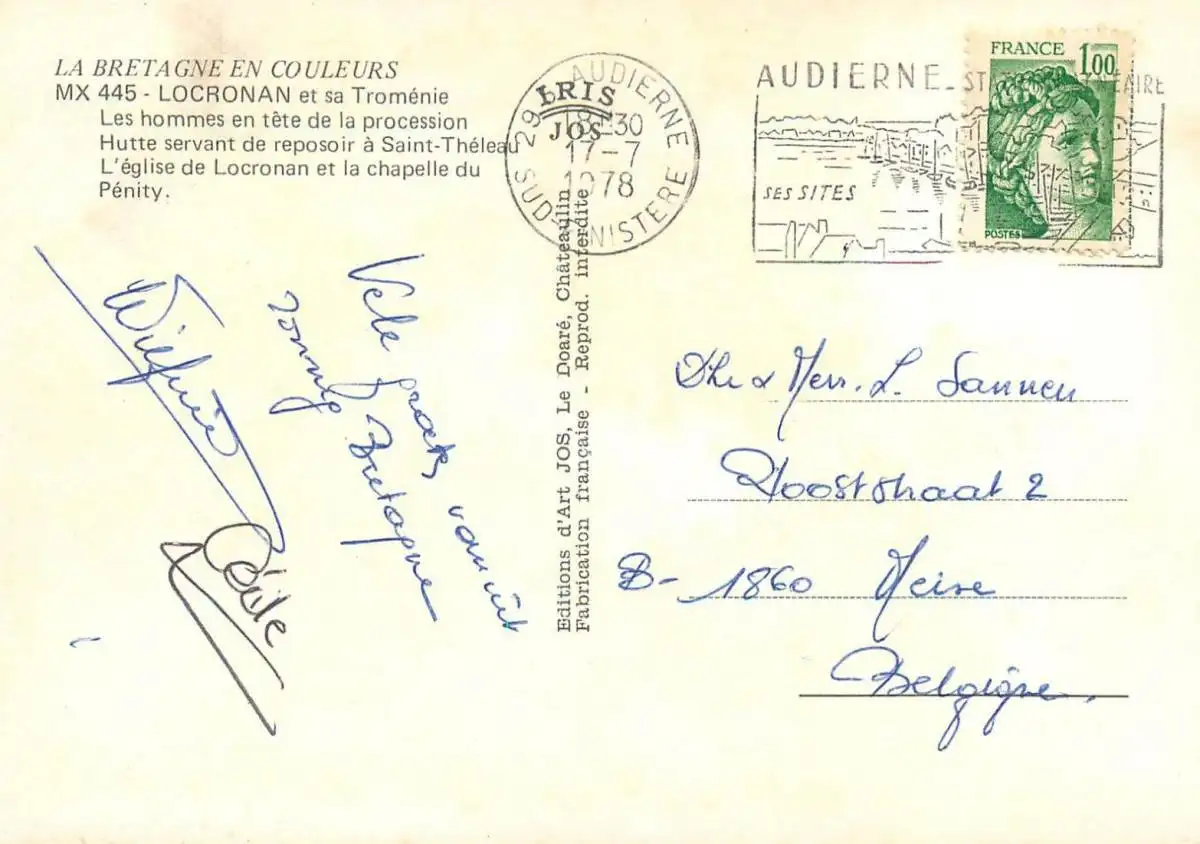 LA BRETAGNE EN COULEURS
MX 445 - LOCRONAN et sa Troménie
Les hommes en tête de la procession
Hutte servant de reposoir à Saint-Théleau
L'église de Locronan et la chapelle du
Pénity.
IRIS
JOS
29 AUDIERNE
18-30
17-7
1978
SUD FINISTERE
AUDIERNE
SES SITES
FRANCE 1,00
POSTES
Editions d'Art JOS, Le Doaré, Châteaulin
Fabrication française - Reprod. interdite
Vele groeten vanuit
zonnig Bretagne
Wilfried
Cécile
Dhr & Mevr. L. Sannen
Nooststraat 2
B- 1860 Meise
Belgigne.